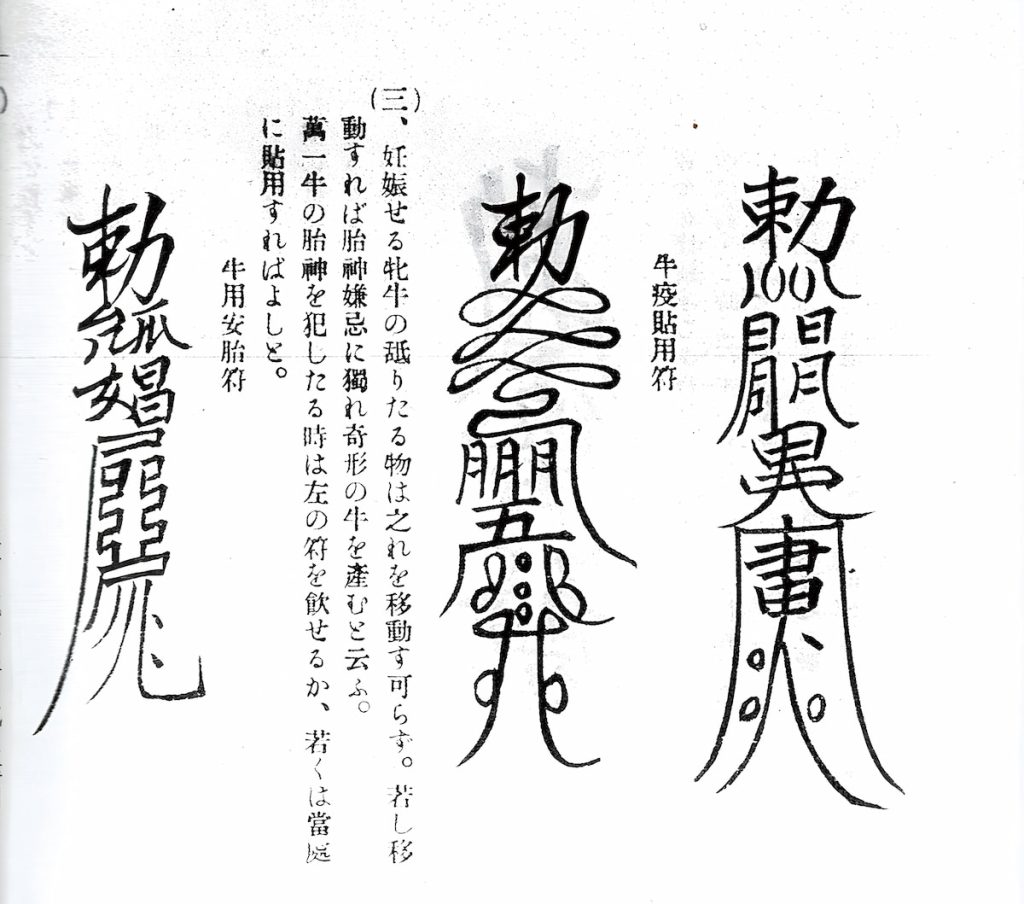 勅
牛疫貼用符
勅
五
(三)、妊娠せる牝牛の舐りたる物は之れを移動す可らず。若し移
動すれば胎神嫌忌に獨れ奇形の牛を產むと云ふ。
萬一牛の胎神を犯したる時は左の符を飮せるか、若くは當
に貼用すればよしと。
牛用安胎符
勅